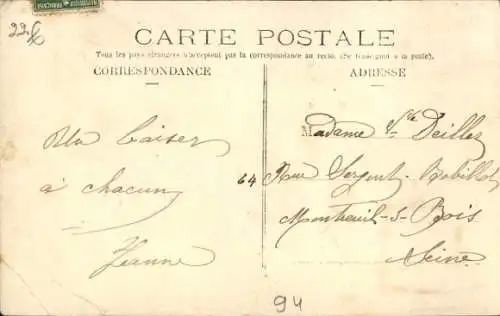 22.
CARTE POSTALE
Tous les pays étrangers n'acceptent pas la correspondance au recto. (Se renseigner à la poste).
CORRESPONDANCE
ADRESSE
Un baiser
à chacun
Jeanne
Madame Vve Deillez
64 Rue Sergent Bobillot
Montreuil-s-Bois
Seine
94